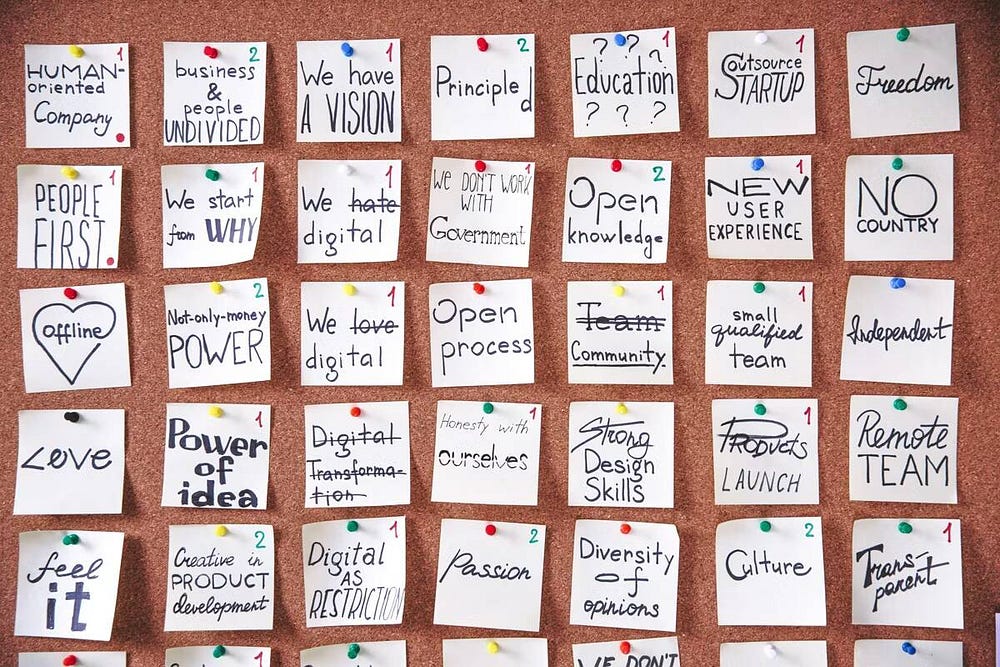 HUMAN-
oriented
Company
1
business
&
people
UNDIVIDED
2
We have
A VISION
1
Principled
2
? ?
Education
? ? ?
1
Outsource
STARTUP
1
Freedom
PEOPLE
FIRST.
1
We start
from WHY
1
We hate
digital
1
WE DON'T WORK
WITH
Government
1
Open
knowledge
2
NEW
USER
EXPERIENCE
1
NO
COUNTRY
offline
Not-only-money
POWER
2
We love
digital
1
Open
process
Team
Community.
1
small
qualified
team
1
Independent
Love
Power
of
idea
1
Digital
Transforma-
tion
Honesty with
ourselves
1
Strong
Design
Skills
PRODUCTS
LAUNCH
1
Remote
TEAM
feel
it
Creative in
PRODUCT
development
2
Digital
AS
RESTRICTION
1
Passion
2
Diversity
of
opinions
Culture
2
Trans-
parent
1
1
WE DON'T